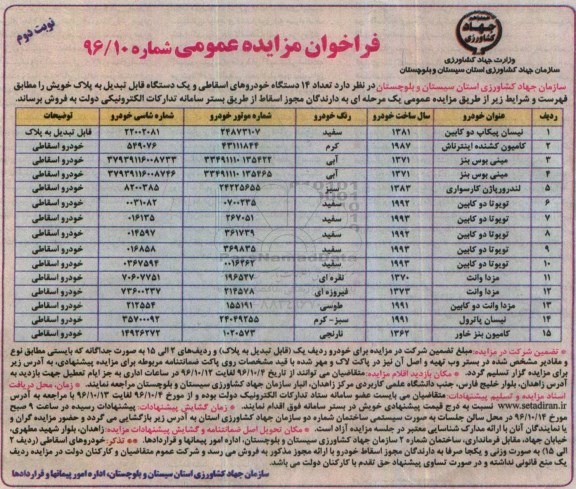 نوبت دوم
جهاد کشاورزی
وزارت جهاد کشاورزی
سازمان جهاد کشاورزی استان سیستان و بلوچستان
فراخوان مزایده عمومی شماره ۹۶/۱۰
سازمان جهاد کشاورزی استان سیستان و بلوچستان در نظر دارد تعداد ۱۴ دستگاه خودروهای اسقاطی و یک دستگاه قابل تبدیل به پلاک خویش را مطابق
فهرست و شرایط زیر از طریق مزایده عمومی یک مرحله ای به دارندگان مجوز اسقاط از طریق بستر سامانه تدارکات الکترونیکی دولت به فروش برساند.
ردیف عنوان خودرو سال ساخت خودرو رنگ خودرو شماره موتور خودرو شماره شاسی خودرو توضیحات
۱ نیسان پیکاپ دو کابین ۱۳۸۱ سفید ۲۴۸۷۳۱۰۷ ۲۲۰۰۲۰۸۱ قابل تبدیل به پلاک
۲ کامیون کشنده اینترناش ۱۹۸۷ کرم ۴۳۱۱۱۸۴۴ ۵۴۹۰۷۶ خودرو اسقاطی
۳ مینی بوس بنز ۱۳۷۱ آبی ۳۳۴۹۱۱۱۰۱۳۵۴۲۲ ۳۷۹۳۹۱۱۶۰۰۸۷۳۳ خودرو اسقاطی
۴ مینی بوس بنز ۱۳۷۱ آبی ۳۳۴۹۱۱۱۰۱۳۵۴۶۵ ۳۷۹۳۹۱۱۶۰۰۸۷۴۶ خودرو اسقاطی
۵ لندرورپاژن کارسواری ۱۳۸۳ سبز ۲۴۲۲۵۶۵۵ ۸۲۰۰۳۸۵ خودرو اسقاطی
۶ تویوتا دو کابین ۱۹۹۲ سفید ۰۷۰۰۲۳۵ ۰۰۳۱۰۸۲ خودرو اسقاطی
۷ تویوتا دو کابین ۱۹۹۳ سفید ۲۶۷۰۵۱ ۰۱۶۱۳۵ خودرو اسقاطی
۸ تویوتا دو کابین ۱۹۹۲ سفید ۳۶۱۷۳۹ ۰۱۴۵۹۷ خودرو اسقاطی
۹ تویوتا دو کابین ۱۹۹۳ سفید ۳۶۹۸۳۵ ۰۱۶۸۵۸ خودرو اسقاطی
۱۰ تویوتا دو کابین ۱۹۹۳ سفید ۰۰۱۶۴۶۲ ۰۳۶۷۵۹۴ خودرو اسقاطی
۱۱ مزدا وانت ۱۳۷۰ نقره ای ۱۹۶۵۳۷ ۷۰۶۰۷۷۵۱ خودرو اسقاطی
۱۲ مزدا وانت ۱۳۷۳ فیروزه ای ۲۱۴۵۷۸ ۷۳۶۰۰۲۳۷ خودرو اسقاطی
۱۳ مزدا وانت دو کابین ۱۹۹۱ طوسی ۱۵۵۱۹۱ ۲۱۲۵۵۴ خودرو اسقاطی
۱۴ نیسان پاترول ۱۹۹۱ سبز-کرم ۲۴۰۴۹۲۵۵ ۳۵۷۰۰۰۹۲ خودرو اسقاطی
۱۵ کامیون بنز خاور ۱۳۶۲ نارنجی ۱۰۲۰۵۷۳ ۱۴۹۲۶۲۷۲ خودرو اسقاطی
* تضمین شرکت در مزایده: مبلغ تضمین شرکت در مزایده برای خودرو ردیف یک (قابل تبدیل به پلاک) و ردیف‌های ۲ الی ۱۵ به صورت جداگانه که بایستی مطابق نوع
و مقادیر مشخص شده در بستر وب تهیه و اصل آن نیز در پاکت لاک و مهر شده با قید مشخصات روی پاکت ضمانتنامه مربوطه برای مزایده پیشنهادی، به آدرس زیر
برای مزایده گزار تسلیم گردد. * مکان بازدید اقلام مزایده: متقاضیان می توانند از تاریخ ۹۶/۱۰/۴ لغایت ۹۶/۱۰/۱۲ در ساعات اداری به جز ایام تعطیل جهت بازدید به
آدرس زاهدان، بلوار خلیج فارس، جنب دانشگاه علمی کاربردی مرکز زاهدان، انبار سازمان جهاد کشاورزی سیستان و بلوچستان مراجعه نمایند. * زمان، محل دریافت
اسناد مزایده و تسلیم پیشنهادات: متقاضیان می بایست عضو سامانه ستاد تدارکات الکترونیک دولت بوده و از مورخ ۹۶/۱۰/۴ لغایت ۹۶/۱۰/۱۳ با مراجعه به آدرس
www.setadiran.ir نسبت به درج قیمت پیشنهادی خویش در بستر سامانه فوق اقدام نمایند. * زمان گشایش پیشنهادات: پیشنهادات رسیده در ساعت ۹ صبح
مورخ ۹۶/۱۰/۱۴ در محل سالن جلسات به صورت سیستمی ساختمان شماره دو سازمان جهاد کشاورزی استان به آدرس زیر بازگشایی می گردد و حضور مزایده گران و
یا نمایندگان آنان با ارائه مدارک شناسایی معتبر در جلسه مزایده آزاد است. * مکان تحویل اصل ضمانتنامه و گشایش پیشنهادات مزایده: زاهدان، بلوار شهید مطهری،
خیابان جهاد، مقابل فرمانداری، ساختمان شماره ۲ سازمان جهاد کشاورزی سیستان و بلوچستان، اداره امور پیمانها و قراردادها. ** تذکر: خودروهای اسقاطی (ردیف ۲
الی ۱۵) به صورت وزنی و یکجا صرفا به دارندگان مجوز اسقاط خودرو با ارائه مجوز مذکور به فروش می رسد و شرکت عموم متقاضیان و کارکنان دولت در مزایده ردیف
یک منع قانونی نداشته و در صورت تساوی پیشنهاد حق تقدم با کارکنان دولت می باشد.
سازمان جهاد کشاورزی استان سیستان و بلوچستان، اداره امور پیمانها و قراردادها